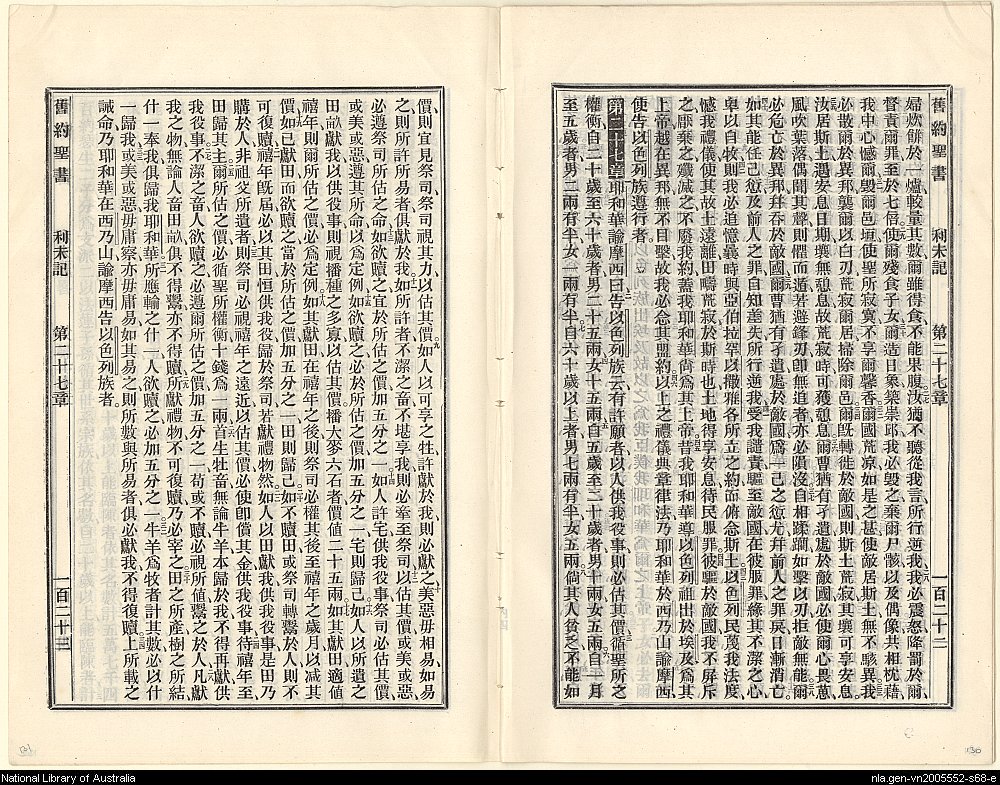 舊約聖書 利未記 第二十七章 一百二十二
婦炊餅於一爐較量其數爾雖得食不能果腹汝猶不聽從我言所行逆我我必震怒降罰於爾
督責爾罪至於七倍使爾殘食子女爾造日象築崇邱我必毀之棄爾尸骸以及偶像共相枕藉
我中心憾爾毀爾邑垣使聖所寂寞不享爾馨香爾國荒凉如是之甚使敵居斯土無不駭異我
必散爾於異邦襲爾以白刃荒寂爾居掃除爾邑爾旣轉徙於敵國則斯土荒寂其壤可享安息
汝居斯土遇安息日期壤無憩息故荒寂時可獲憩息爾曹猶有孑遺處於敵國必使爾心畏葸
風吹葉落偶聞其聲則懼而遁若避鋒刃卽無追者亦必隕沒自相蹂躪如擊以刃拒敵無能爾
必危亡於異邦幷吞於敵國爾曹猶有孑遺處於敵國爲一己之愆尤幷前人之罪戾日漸消亡
如其能任己愆及前人之罪自知差失所行逆我受我譴責驅至敵國在彼服罪緣其不潔之心
卑以自牧則我必追憶曩時與亞伯拉罕以撒雅各所立之約而俯念斯土以色列民蔑我法度
憾我禮儀使其故土遠離田疇荒寂於斯時也土地得享安息待民服罪彼驅於敵國我不屏斥
之厭棄之殲滅之不廢我約蓋我耶和華尙爲其上帝昔我耶和華導以色列祖出於埃及爲其
上帝越在異邦無不目擊故我必念其盟約以上之禮儀典章律法乃耶和華於西乃山諭摩西
使告以色列族遵行者
第二十七章 耶和華諭摩西曰告以色列族云有許願者以人供我役事則必估其價循聖所之
權衡自二十歲至六十歲者男二十五兩女十五兩自五歲至二十歲者男十兩女五兩自一月
至五歲者男二兩有半女一兩有半自六十歲以上者男七兩有半女五兩倘其人貧乏不能如
價則宜見祭司祭司視其力以估其價如人以可享之牲許獻於我則必獻之美惡毋相易如易
之則所許所易者俱獻於我如所許者不潔之畜不堪享我則必牽至祭司以估其價或美或惡
必遵祭司所估之命如欲贖之宜於所估之價加五分之一如人許宅供我役事祭司必估其價
或美或惡遵其所命以爲定例如欲贖之則必於所估之價加五分之一宅則歸己如人以所遺之
田畝獻我以供役事則視播種之多寡以估其價播大麥六石者價値二十五兩如其獻田適値
禧年則爾所估之價必爲定例如其獻田在禧年之後則祭司必權其後至禧年之歲月以減其
價如已獻田而欲贖之當於所估之價加五分之一田則歸己如不贖田或祭司轉鬻於人則不
可復贖禧年旣屆必以其田恒供我役歸於祭司若獻禮物然如人以田獻我供我役事是田乃
購於人非祖父所遺者則祭司必視禧年之遠近以估其價必使卽償其金供我役事待禧年至
田歸其主爾所估之價必循聖所權衡十錢爲一兩首生牲畜無論牛羊本歸於我不得再獻供
我役事不潔之畜人欲贖之必遵爾所估之價加五分之一苟或不贖必視所値鬻之於人凡獻
我之物無論人畜田畝俱不得鬻亦不得贖所獻禮物不可復贖乃必宰之田之所產樹之所結
什一奉我俱歸我耶和華所應輸之什一人欲贖之必加五分之一牛羊爲牧者計其數必以什
一歸我或美或惡毋庸察亦毋庸易如其易之則所數與所易者俱必獻我不得復贖上所載之
誡命乃耶和華在西乃山諭摩西告以色列族者
舊約聖書 利未記 第二十七章 一百二十三
130
National Library of Australia
nla.gen-vn2005552-s68-e